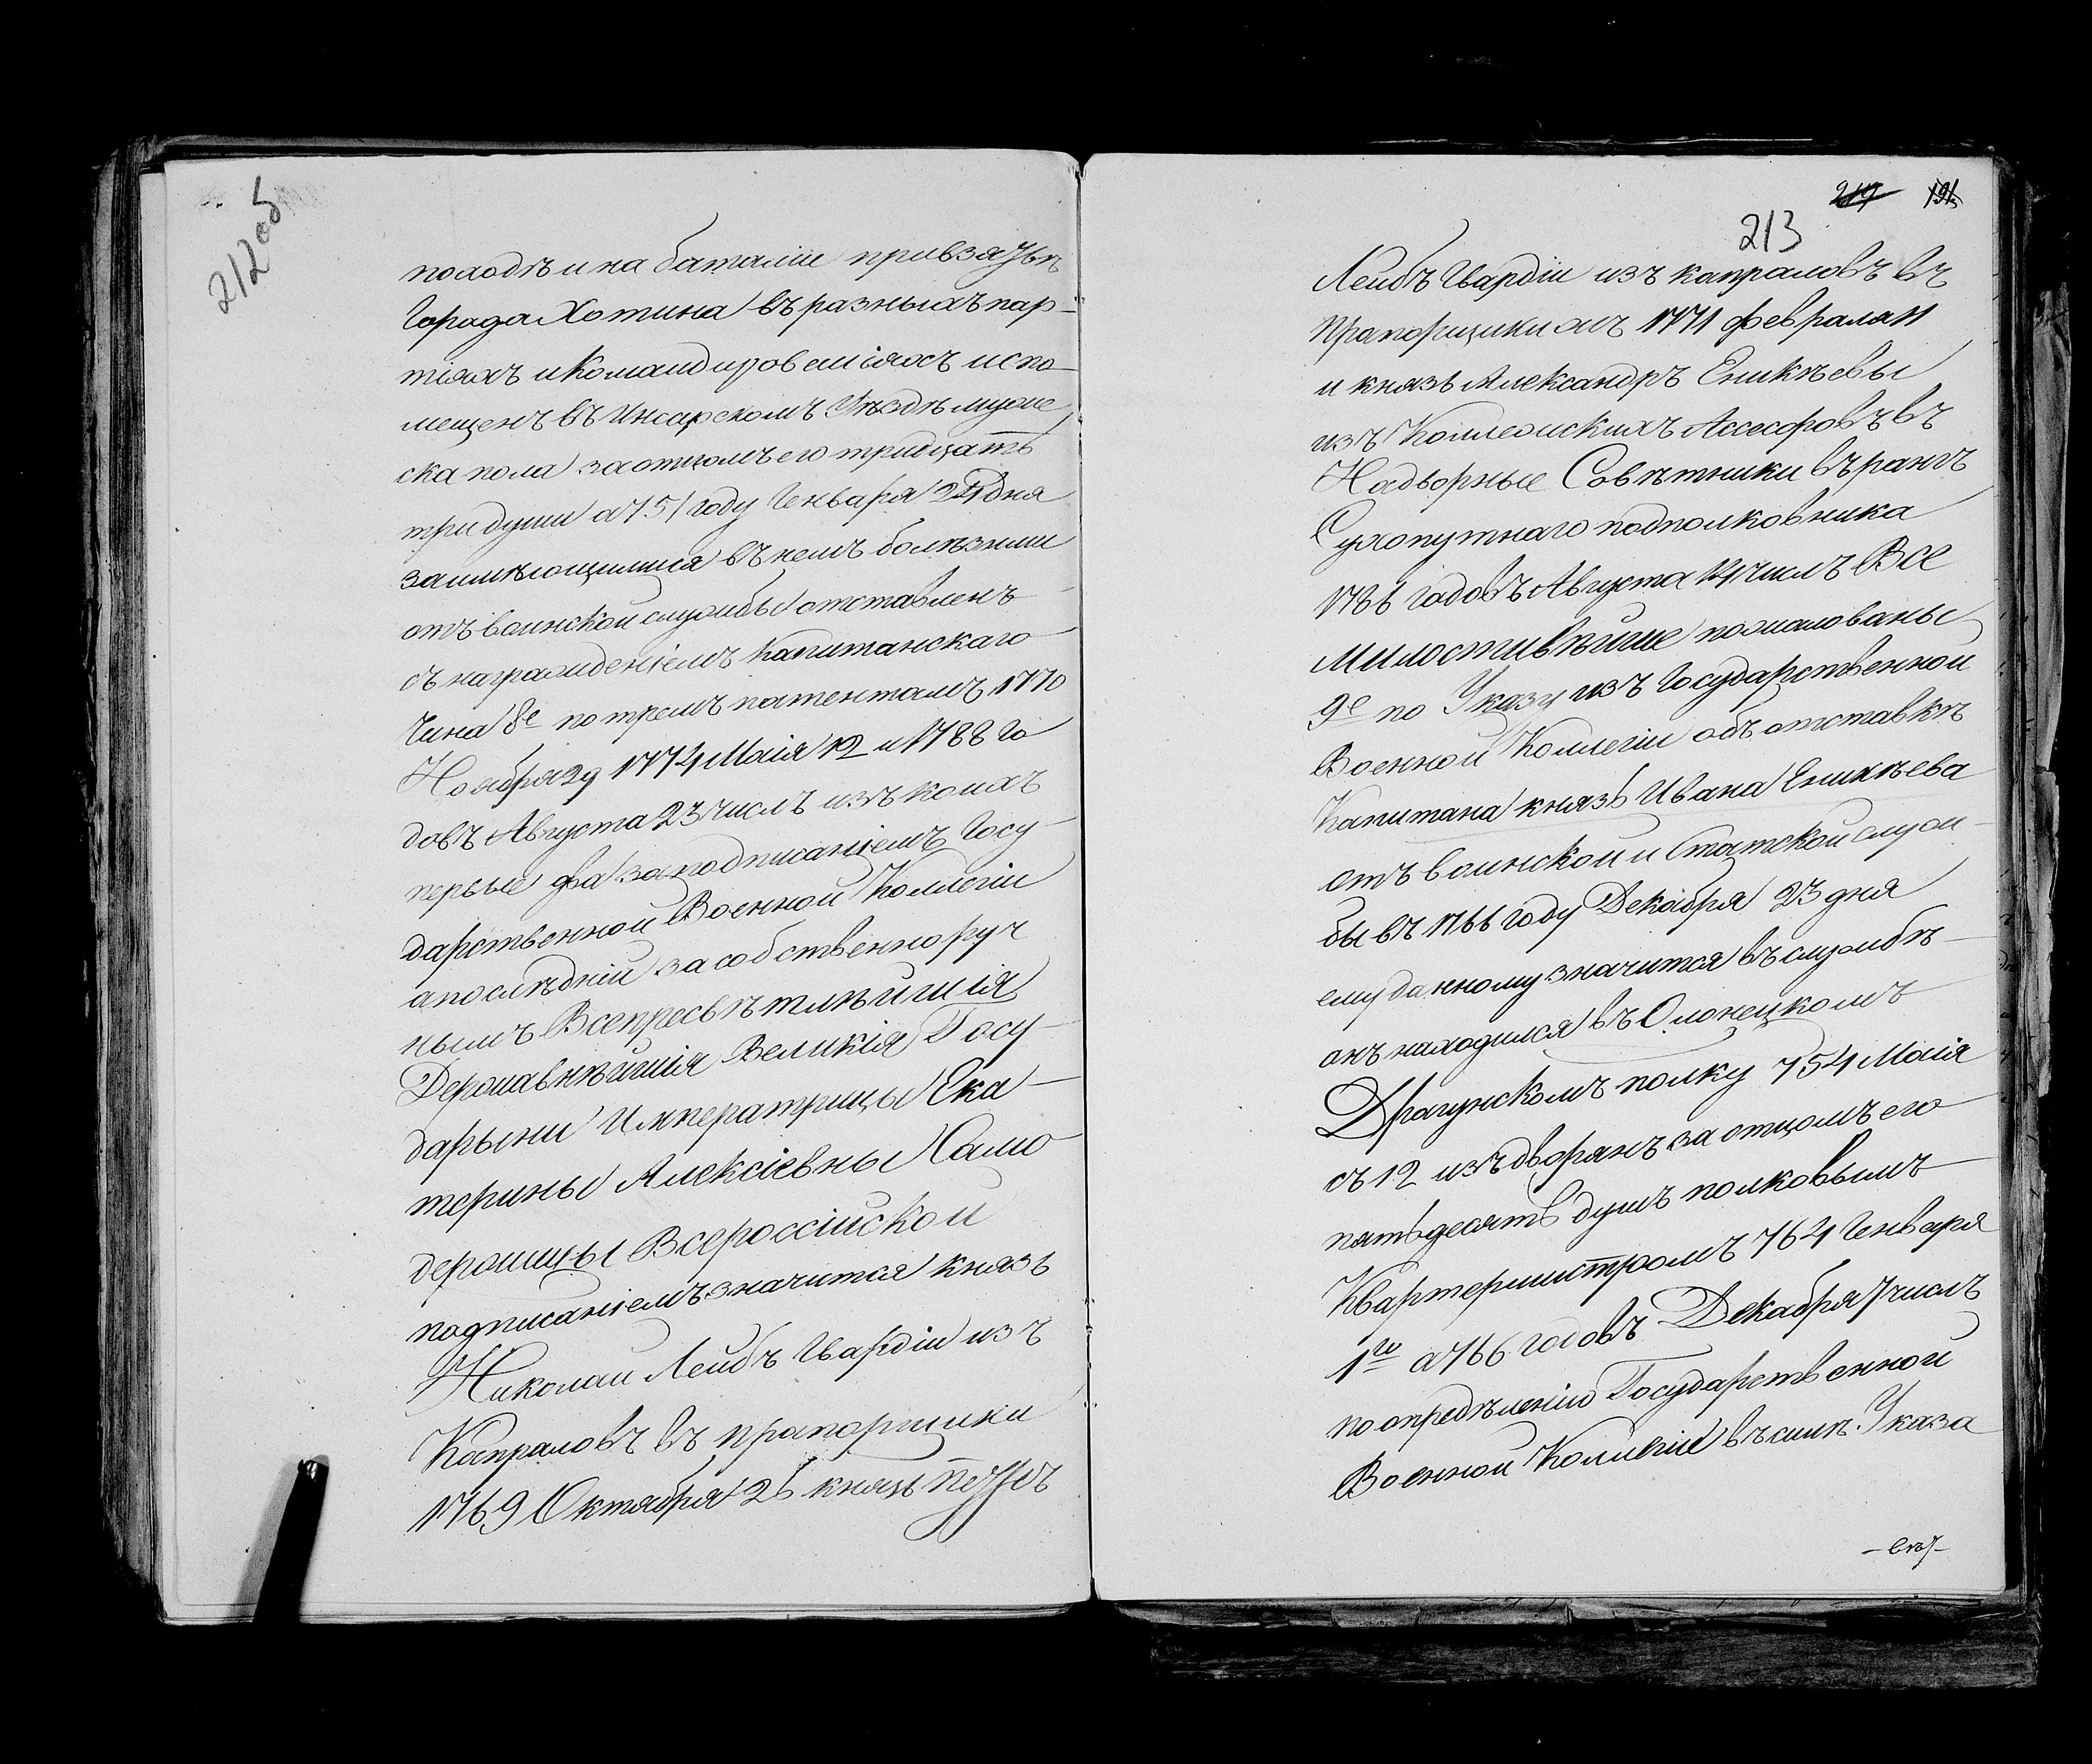 212 об
походѣ и на баталіи при взятьѣ
Города Хотина въ разныхъ пар-
тіяхъ и командированіяхъ испо-
мещенъ въ Инсарскомъ Уѣздѣ муже
ска пола за отцомъ его тридцать
три души а 751 году Генваря 24 дня
за имѣющимися въ немъ болѣзньми
отъ воинской службы отставленъ
съ награжденіемъ Капитанскаго
Чина 8е по тремъ патентамъ 1770
Ноября 29 1774 Маія 12 и 1788 го
довъ Августа 23 числъ изъ коихъ
первые два за подписаніемъ Госу-
дарственной Военной Коллегіи
а послѣдній за собственноруч
нымъ Всепресвѣтлѣйшія
Державнѣйшія Великія Госу-
дарыни Императрицы Ека-
терины Алексіевны Само
держицы Всероссійской
подписаніемъ значится князь
Николай Лейбъ Гвардіи изъ
Капраловъ въ прапорщики
1769 Октября 26 князь Петръ
219 191
213
Лейбъ Гвардіи изъ капраловъ въ
Прапорщики жъ 1771 февраля 11
и князь Александръ Еникѣевы
изъ Коллежскихъ Ассесоровъ въ
Надворные Совѣтники въ рангѣ
Сухопутнаго подполковника
1786 годовъ Августа 14 числъ Все
Милостивѣйше пожалованы
9е по Указу изъ Государственной
Военной Коллегіи объ отставкѣ
Капитана князь Ивана Еникѣева
отъ воинской и Статской служ-
бы въ 1766 году Декабря 23 дня
ему данному значится въ службѣ
онъ находился въ Олонецкомъ
Драгунскомъ полку 754 Маія
съ 12 изъ дворянъ за отцомъ его
пятьдесятъ душъ полковымъ
Квартермистромъ 764 Генваря
1го а 766 годовъ Декабря 7 числъ
по опредѣленію Государственной
Военной Коллегіи въ силѣ Указа